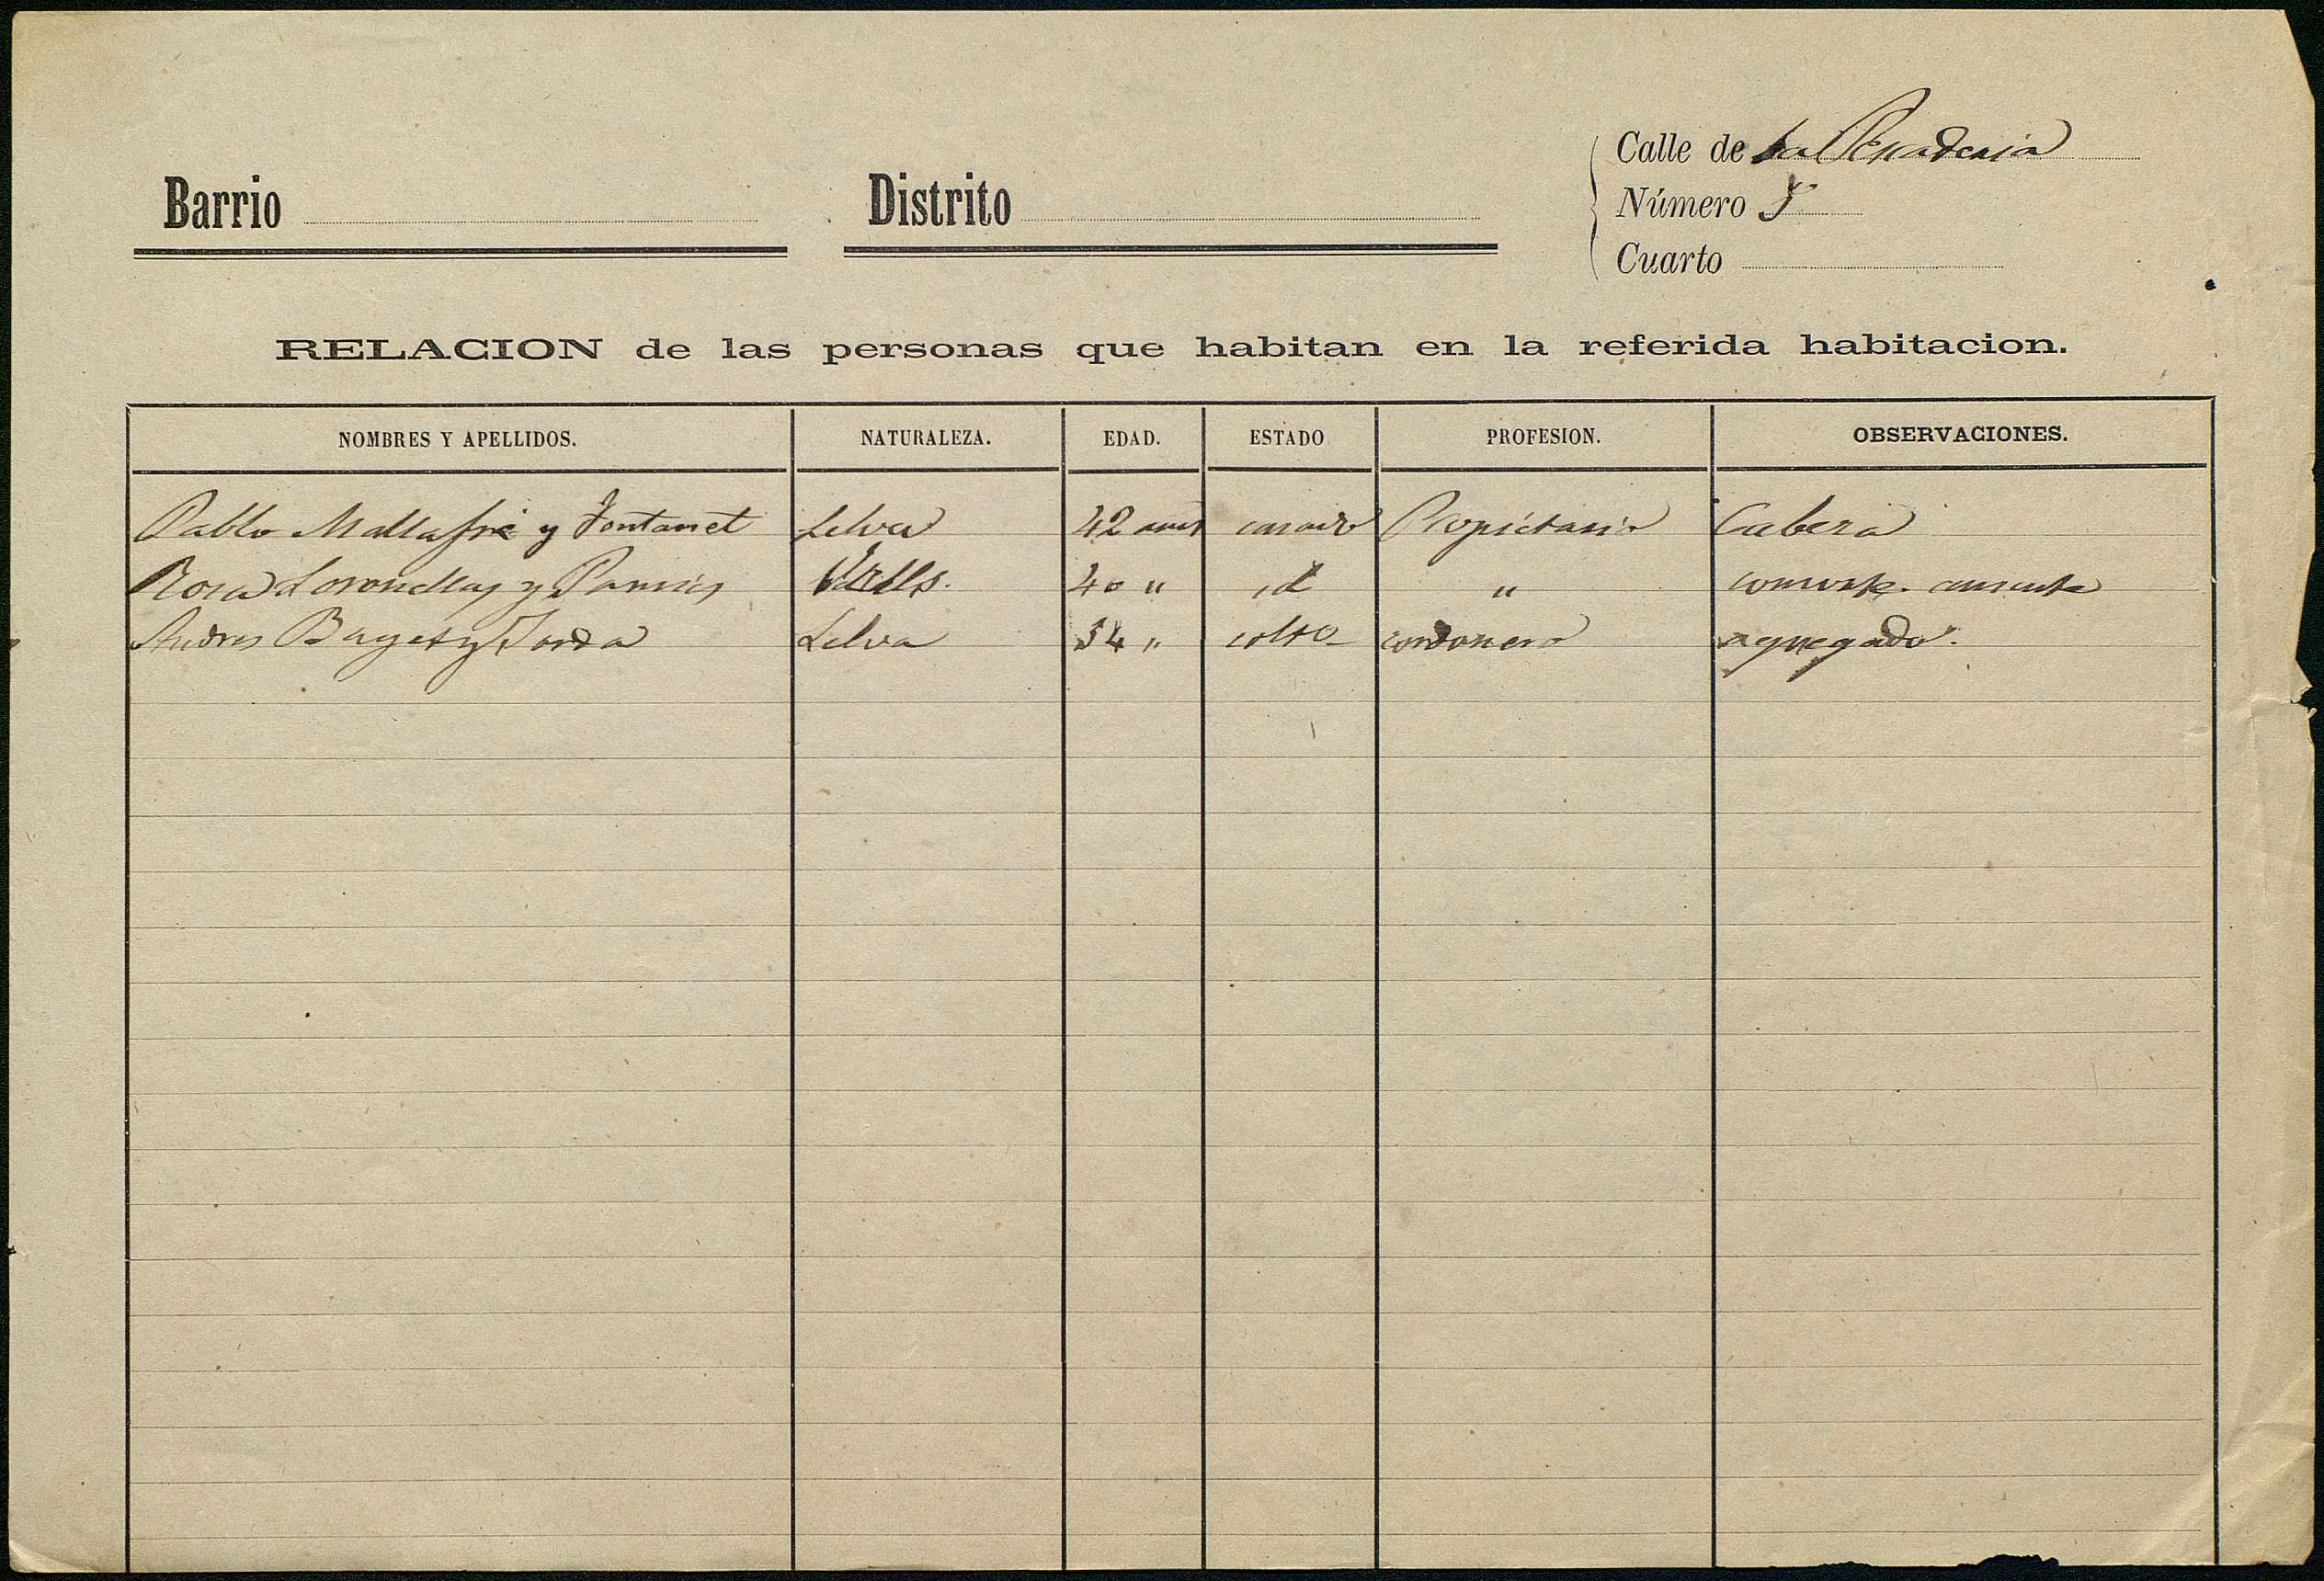 Calle de la Pescaderia
Barrio Distrito Número 5
Cuarto
RELACION de las personas que habitan en la referida habitacion.
NOMBRES Y APELLIDOS. NATURALEZA. EDAD. ESTADO PROFESION. OBSERVACIONES.
Pablo Mallafré y Fontanet Selva 42 años casado Propietario Cabeza
Rosa y Pamies Valls. 40 " id " consorte ausente
Andres Baget y Jorda Selva 54 " solto cordonero agregado.